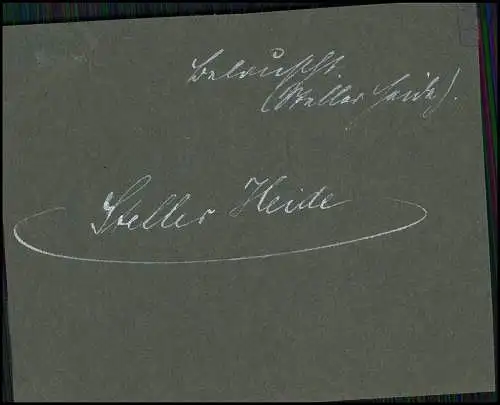 belauscht.
(Steller Heide).
Steller Heide